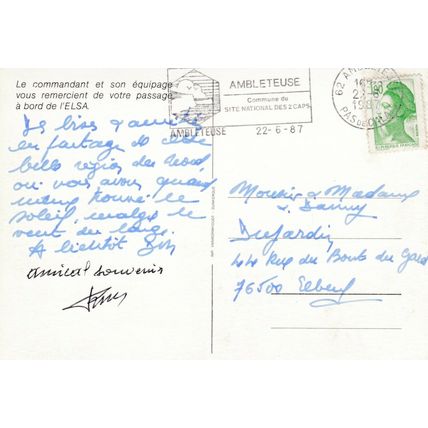 Le commandant et son équipage
vous remercient de votre passage
à bord de l'ELSA.
AMBLETEUSE
Commune de
SITE NATIONAL DES 2 CAPS
AMBLETEUSE 22-6-87
62 AMBLETEUSE
1987
PAS DE CALAIS
en partage de cette
belle région du Nord,
où vous avons quand
même trouvé le
soleil, malgré le
vent du large.
A bientôt
amical souvenir
Monsieur & Madame
Danny
Dujardin
44 Rue du Bouts du Gard
76500 Elbeuf